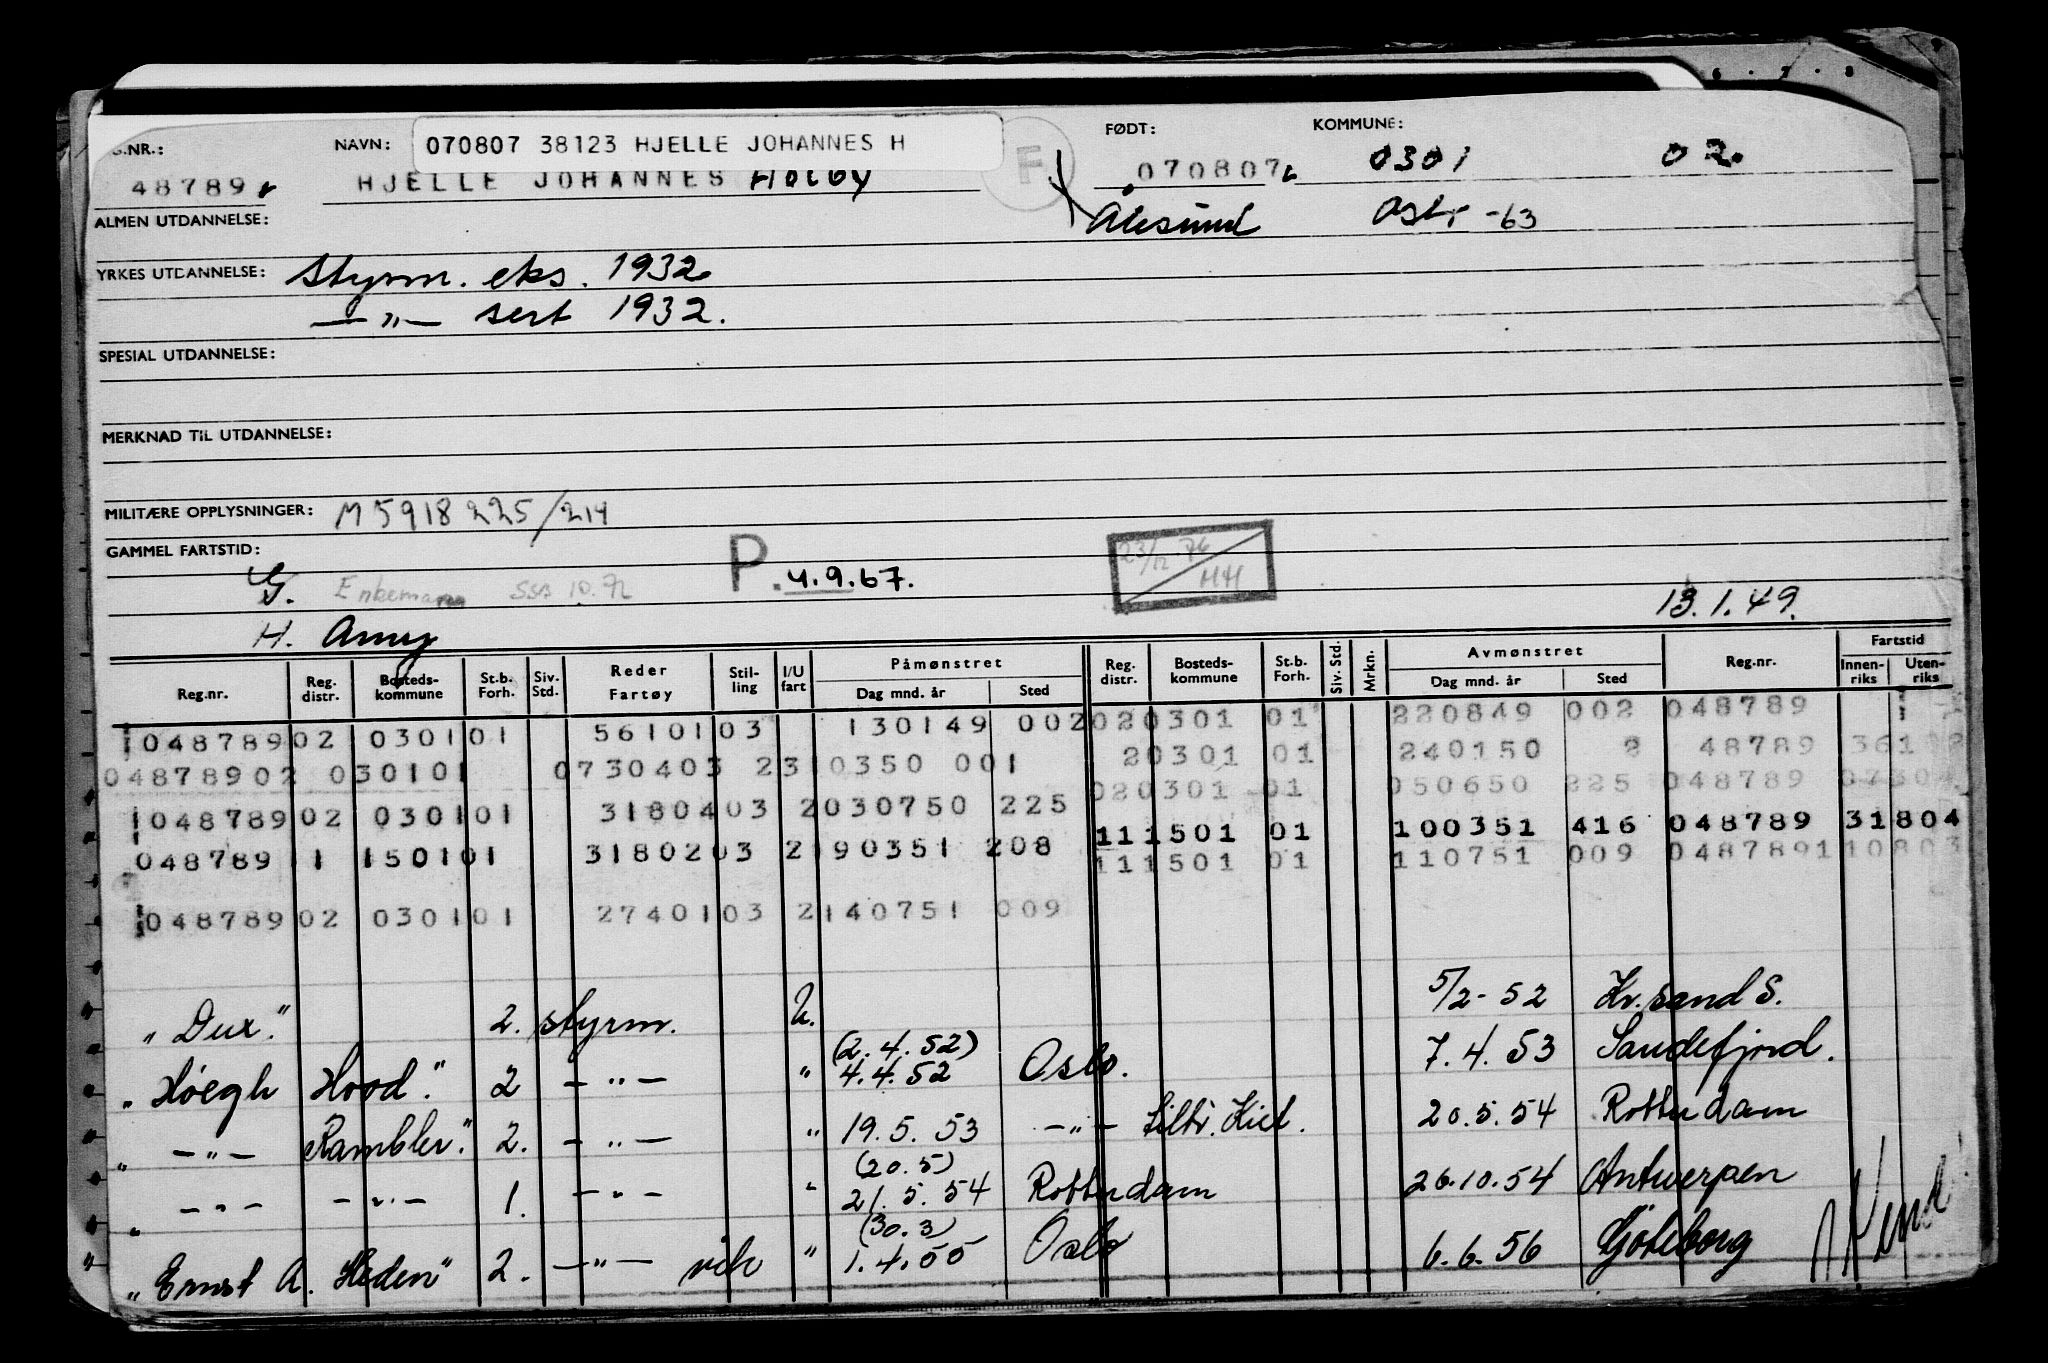 6 . 7 . 8
S.NR.: NAVN: 070807 38123 HJELLE JOHANNES H F FØDT: KOMMUNE:
48789 HJELLE JOHANNES Holby 070807 0301 02
ALMEN UTDANNELSE: Ålesund Oslo -63
YRKES UTDANNELSE: Styrm. eks. 1932
— " — sert 1932.
SPESIAL UTDANNELSE:
MERKNAD TIL UTDANNELSE:
MILITÆRE OPPLYSNINGER: M 5918 225/214
GAMMEL FARTSTID: P. 4.9.67. 23/12 76 HH
G. Enkemann SSB 10.72
H. Anny 13.1.49.
Reg.nr. Reg. distr. Bosteds- kommune St.b. Forh. Siv. Std. Reder Fartøy Stil- ling I/U fart Påmønstret Dag mnd. år Sted Reg. distr. Bosteds- kommune St.b. Forh. Siv. Std. Mrkn. Avmønstret Dag mnd. år Sted Reg.nr. Fartstid Innen- riks Uten- riks
048789 02 0301 01 56101 03 130149 002 02 0301 01 220849 002 048789
048789 02 0301 01 07304 03 2310350 001 2 0301 01 240150 2 48789
02 0301 01 050650 225 048789 07304
048789 02 0301 01 31804 03 2030750 225 11 1501 01 100351 416 048789 31804
048789 11 1501 01 31802 03 2190351 208 11 1501 01 110751 009 048789 110803
048789 02 0301 01 27401 03 2140751 009
"Dux". 2. styrm. U. 5/2-52 Kr.sand S.
"Høegh Hood". 2 — " — " (2.4.52) 4.4.52 Oslo. 7.4.53 Sandefjord.
" — " — Rambler". 2. — " — " 19.5.53 — " — Kiel. 20.5.54 Rotterdam
" — " — — " — 1. — " — " (20.5) 21.5.54 Rotterdam 26.10.54 Antwerpen
"Ernst A. Heden" 2. — " — vik " (30.3) 1.4.55 Oslo 6.6.56 Göteborg